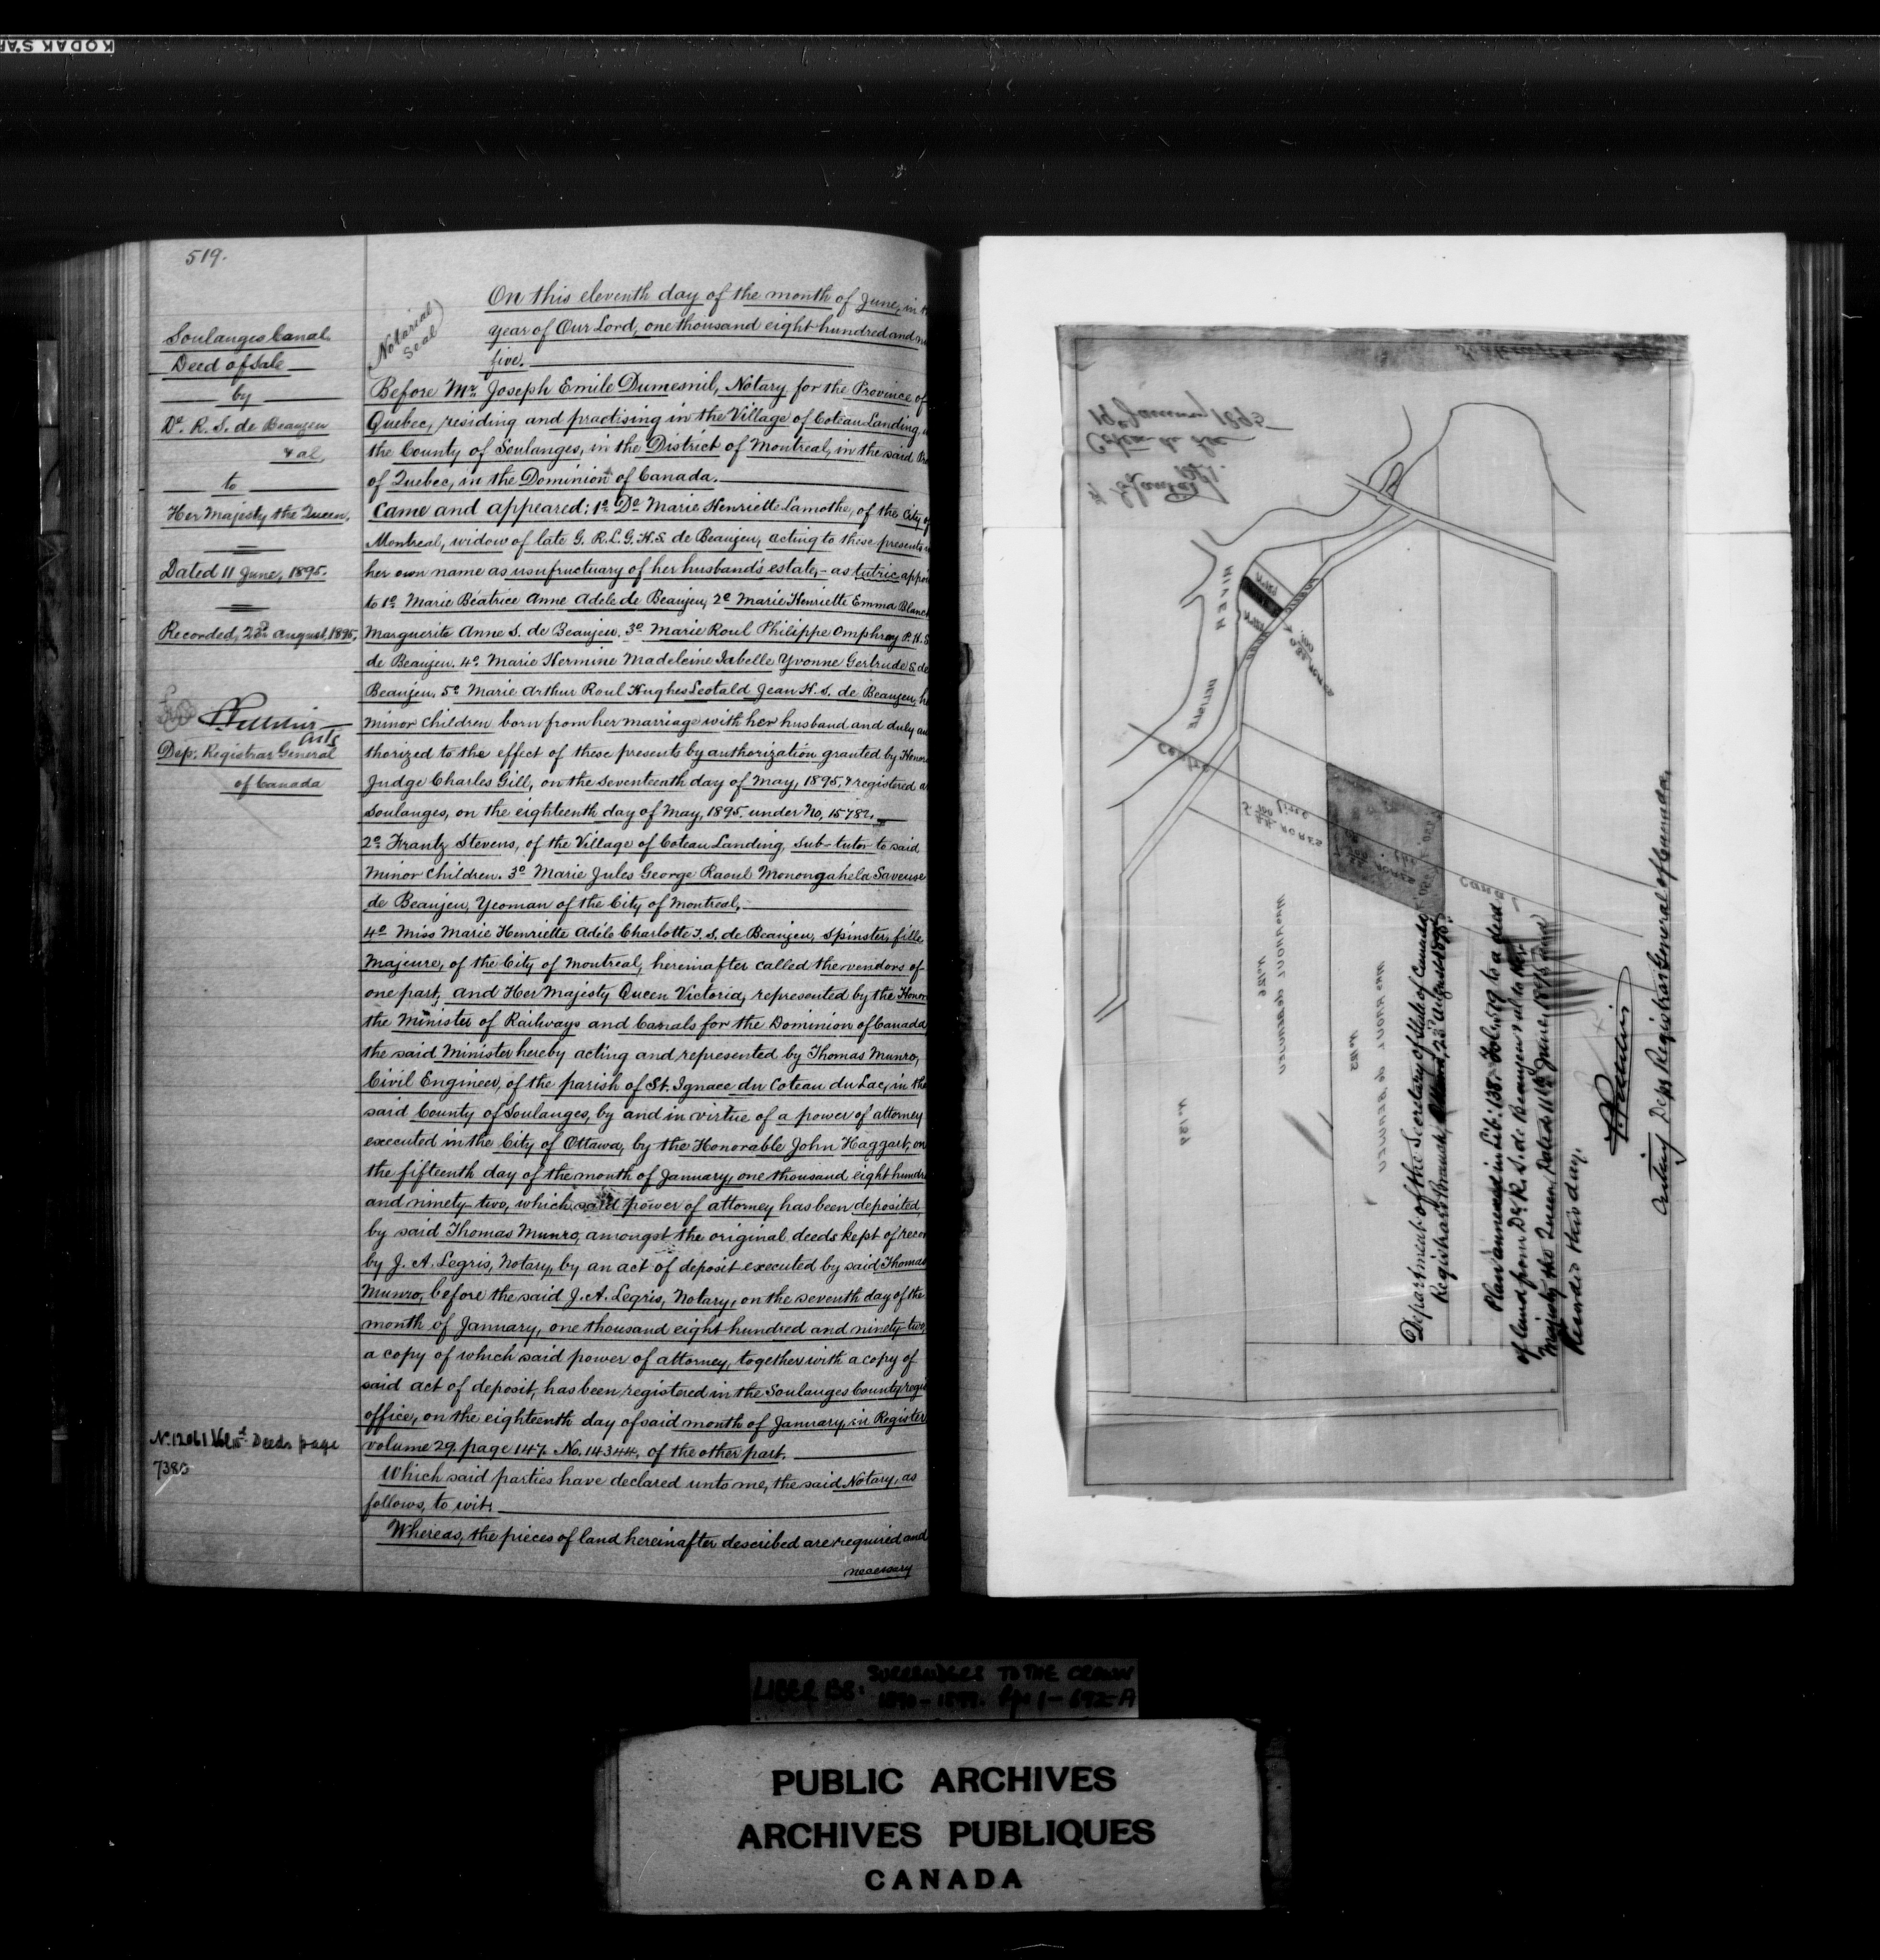 519.
Soulanges Canal
Deed of Sale
by
De. R. S. de Beaujeu
& al,
to
Her Majesty the Queen.
Dated 11 June, 1895.
Recorded, 23d August, 1895.
Acts
Dep. Registrar General
of Canada
Deeds page
(Notarial
Seal)
On this eleventh day of the month of June, in
year of Our Lord, one thousand eight hundred and
five.
Before Mr. Joseph Emile Dumesnil, Notary for the Province of
Quebec, residing and practising in the Village of Coteau Landing,
the County of Soulanges, in the District of Montreal, in the said
of Quebec, in the Dominion of Canada.
Came and appeared: 1o De Marie Henriette Lamothe, of the City of
Montreal, widow of late G. R. L. G. H. S. de Beaujeu, acting to these presents
her own name as usufructuary of her husband's estate, - as tutrix
to 1o Marie Béatrice Anne Adele de Beaujeu, 2o Marie Henriette Emma
Marguerite Anne S. de Beaujeu, 3o Marie Roul Philippe Omphray P. H. S
de Beaujeu. 4o Marie Hermine Madeleine Isabelle Yvonne Gertrude S. de
Beaujeu. 5o Marie Arthur Roul Hughes Leotald Jean H. S. de Beaujeu,
minor children born from her marriage with her husband and duly au
thorized to the effect of these presents by authorization granted by
Judge Charles Gill, on the seventeenth day of May, 1895, & registered
Soulanges, on the eighteenth day of May, 1895. under No, 15782.
2o Frantz Stevens, of the Village of Coteau Landing, sub-tutor to said
minor children. 3o Marie Jules George Raoul Monongahela Saveuse
de Beaujeu, Yeoman of the City of Montreal.
4o Miss Marie Henriette Adéle Charlotte J. S. de Beaujeu, Spinster, fille
majeure, of the City of Montreal, hereinafter called the vendors of
one part; and Her Majesty Queen Victoria, represented by the Honor
the Minister of Railways and Canals for the Dominion of Canada
the said Minister hereby acting and represented by Thomas Munro,
Civil Engineer, of the parish of St. Ignace du Coteau du Lac, in the
said County of Soulanges, by and in virtue of a power of attorney
executed in the City of Ottawa, by the Honorable John Haggart, on
the fifteenth day of the month of January, one thousand eight hundre
and ninety-two, which said power of attorney has been deposited
by said Thomas Munro, amongst the original deeds kept of
by J. A. Legris, Notary, by an act of deposit executed by said Thomas
Munro, before the said J. A. Legris, Notary, on the seventh day of the
month of January, one thousand eight hundred and ninety-two,
a copy of which said power of attorney, together with a copy of
said act of deposit, has been registered in the Soulanges County
office, on the eighteenth day of said month of January, in Register
volume 29. page 147. No. 14344, of the other part.
Which said parties have declared unto me, the said Notary, as
follows, to wit:
Whereas, the pieces of land hereinafter described are required and
necessary
19th January 1895
Coteau du Lac
RIVER
DELISLE
Centre
Line
Canal
ACRES
No 126
MRS RAOUL de BEAUJEU
No 125
MRS RAOUL de BEAUJEU
Department of the Secretary of State of Canada
Registrar's Branch, Ottawa, 23d August 1895.
Plan annexed in Lib: 138. Fol: 519 to a deed
of land from De. R. S. de Beaujeu & al to Her
Majesty the Queen, Dated 11th June, 1895 and
Recorded this day.
Acting Dep. Registrar General of Canada.
LIBER BB: SURRENDERS TO THE CROWN
PUBLIC ARCHIVES
ARCHIVES PUBLIQUES
CANADA